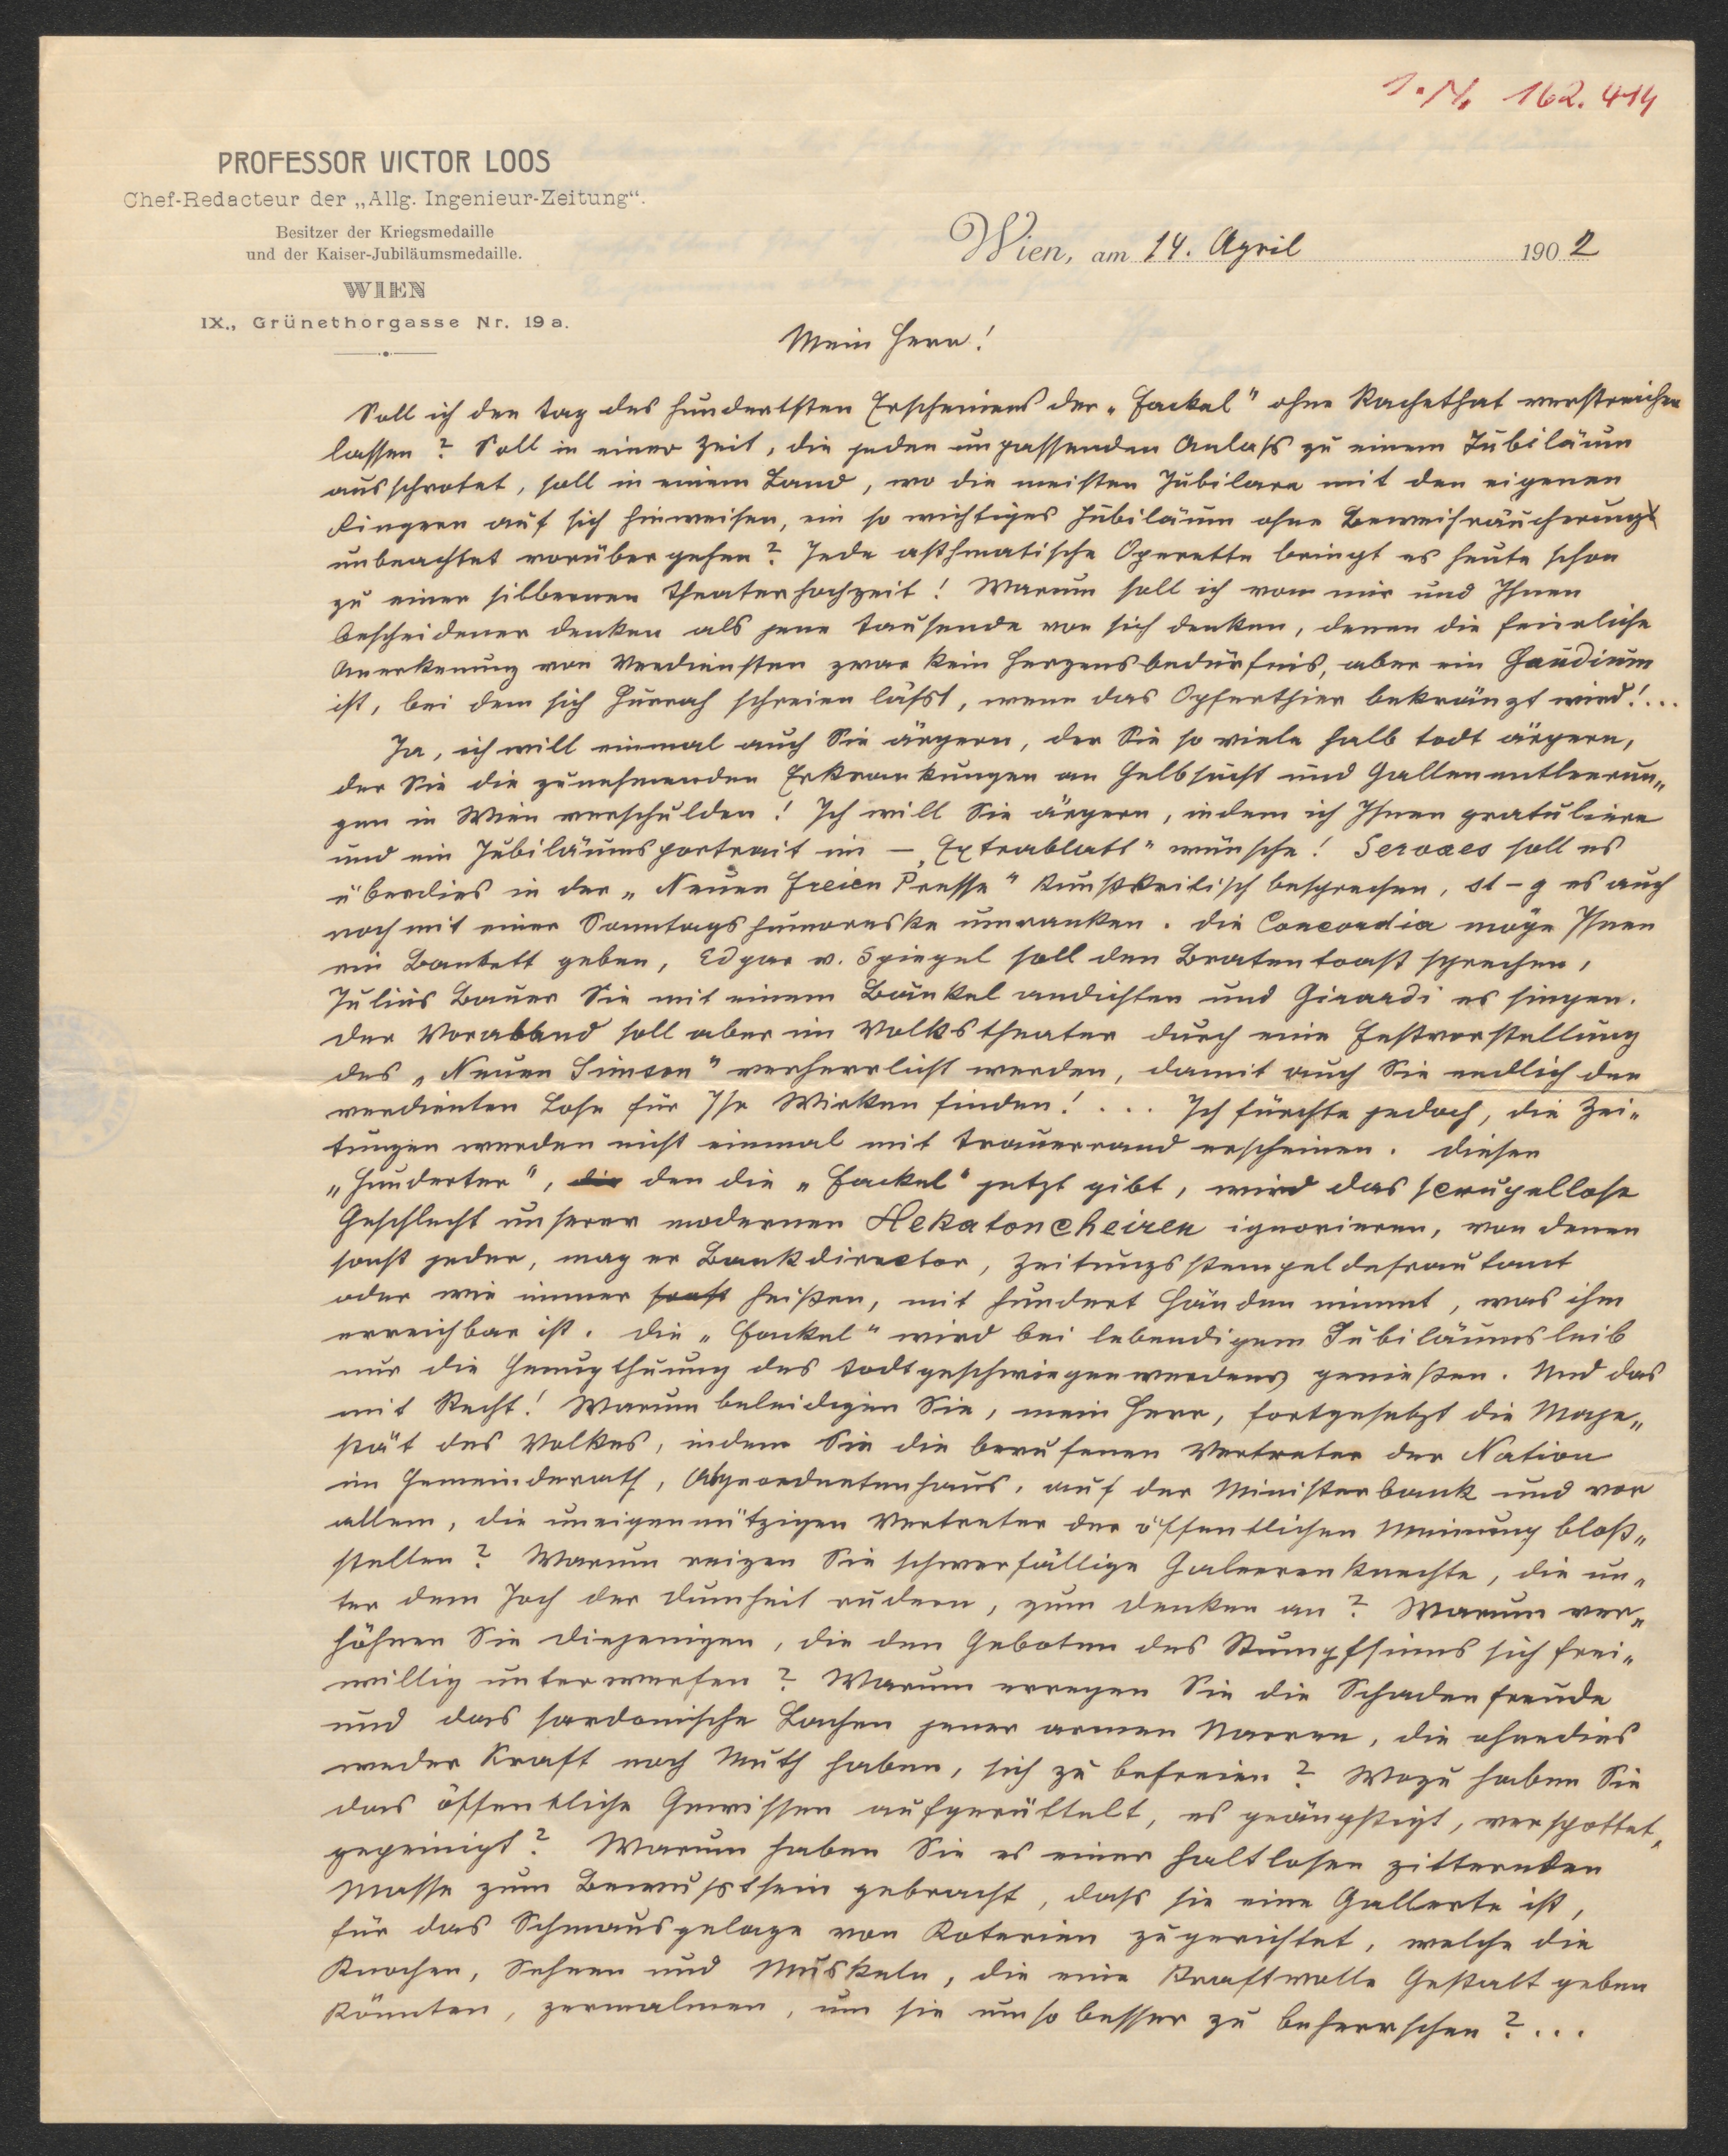 I. N. 162.414
PROFESSOR VICTOR LOOS
Chef-Redacteur der „Allg. Ingenieur-Zeitung“.
Besitzer der Kriegsmedaille
und der Kaiser-Jubiläumsmedaille.
WIEN
IX., Grünethorgasse Nr. 19 a.
Wien, am 14. April 1902
Mein Herr!
Soll ich den Tag des hundertsten Erscheinens der „Fackel“ ohne Rachethat verstreichen
lassen? Soll in einer Zeit, die jeden unpassenden Anlass zu einem Jubiläum
ausschrotet, soll in einem Land, wo die meisten Jubilare mit den eigenen
Fingern auf sich hinweisen, ein so wichtiges Jubiläum ohne Beweihräucherung
unbeachtet vorübergehen? Jede asthmatische Operette bringt es heute schon
zu einer silbernen Theaterhochzeit! Warum soll ich von mir und Ihnen
bescheidener denken als jene Tausende von sich denken, denen die feierliche
Anerkennung von Verdiensten zwar kein Herzensbedürfnis, aber ein Gaudium
ist, bei dem sich Hurrah schreien lässt, wenn das Opferthier bekränzt wird!...
Ja, ich will einmal auch Sie ärgern, der Sie so viele halb todt ärgern,
der Sie die zunehmenden Erkrankungen an Gelbsucht und Gallenentleerun„
gen in Wien verschulden! Ich will Sie ärgern, indem ich Ihnen gratuliere
und ein Jubiläumsportrait im — „Extrablatt“ wünsche! Servaes soll es
überdies in der „Neuen Freien Presse“ kunstkritisch besprechen, st–g es auch
noch mit einer Sonntagshumoreske umranken. Die Concordia möge Ihnen
ein Bankett geben, Edgar v. Spiegel soll den Bratentoast sprechen,
Julius Bauer Sie mit einem Bänkel andichten und Girardi es singen.
Der Vorabend soll aber im Volkstheater durch eine Festvorstellung
des „Neuen Simson“ verherrlicht werden, damit auch Sie endlich den
verdienten Lohn für Ihr Wirken finden! ... Ich fürchte jedoch, die Zei„
tungen werden nicht einmal mit Trauerrand erscheinen. Diesen
„Hunderter“, die den die „Fackel“ jetzt gibt, wird das scrupellose
Geschlecht unserer modernen Hekatoncheiren ignorieren, von denen
sonst jeder, mag er Bankdirector, Zeitungsstempeldefraudant
oder wie immer sonst heißen, mit hundert Händen nimmt, was ihm
erreichbar ist. Die „Fackel“ wird bei lebendigem Jubiläumsleib
nur die Genugthuung des Todtgeschwiegenwerdens genießen. Und das
mit Recht! Warum beleidigen Sie, mein Herr, fortgesetzt die Maje„
stät des Volkes, indem Sie die berufenen Vertreter der Nation
im Gemeinderath, Abgeordnetenhaus, auf der Ministerbank und vor
allem, die uneigennützigen Vertreter der öffentlichen Meinung bloß„
stellen? Warum reizen Sie schwerfällige Galeerenknechte, die un„
ter dem Joch der Dumheit rudern, zum Denken an? Warum ver„
höhnen Sie diejenigen, die den Geboten des Stumpfsinns sich frei„
willig unterwerfen? Warum erregen Sie die Schadenfreude
und das sardonische Lachen jener armen Narren, die ohnedies
weder Kraft noch Muth haben, sich zu befreien? Wozu haben Sie
das öffentliche Gewissen aufgerüttelt, es geängstigt, verspottet,
gepeinigt? Warum haben Sie es einer haltlosen zitternden
Masse zum Bewusstsein gebracht, dass sie eine Gallerte ist,
für das Schmausgelage von Koterien zugerichtet, welche die
Knochen, Sehnen und Muskeln, die eine kraftvolle Gestalt geben
könnten, zermalmen, um sie umso besser zu beherrschen?...